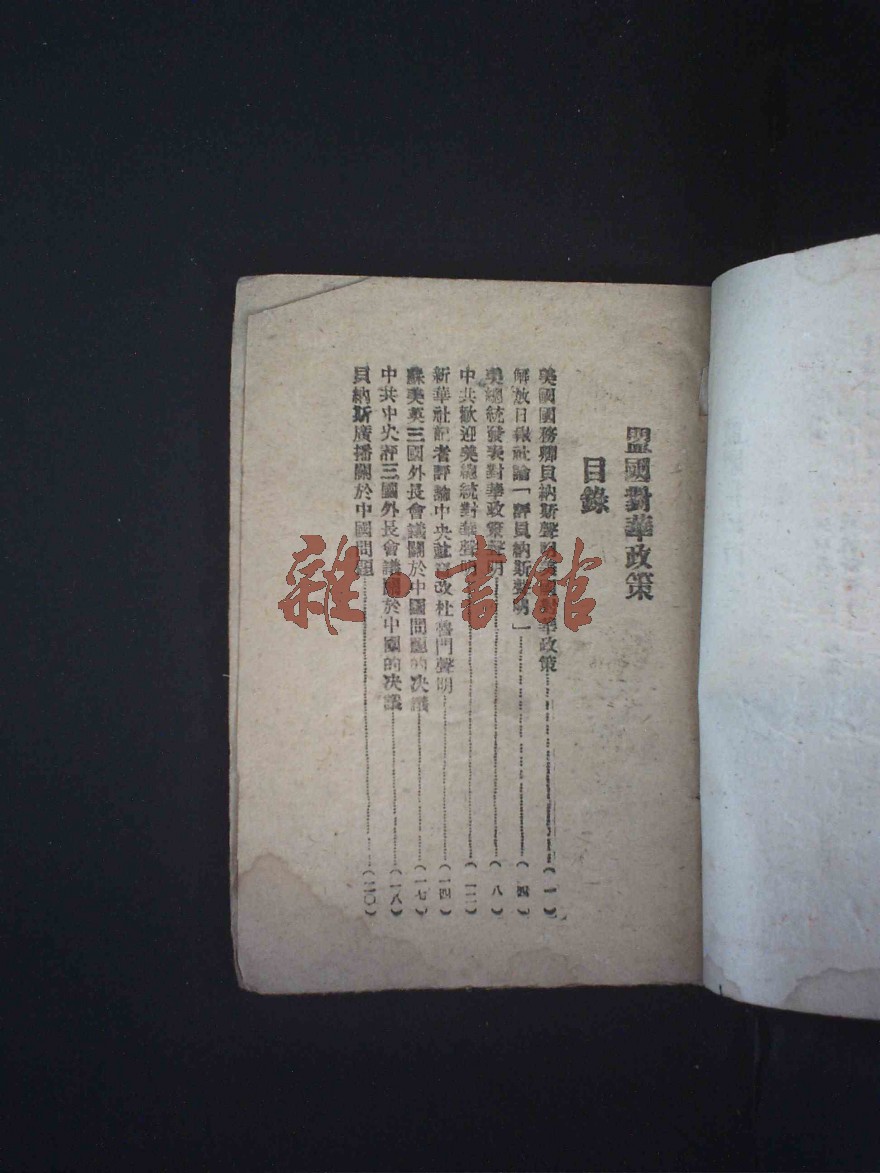 盟國對華政策
目錄
美國國務卿貝納斯聲明美國對華政策……(一)
解放日報社論「評貝納斯聲明」……(四)
美總統發表對華政策聲明……(八)
中共歡迎美總統對華聲明……(一二)
新華社記者評論中央社竄改杜魯門聲明……(一四)
蘇美英三國外長會議關於中國問題的決議……(一七)
中共中央評三國外長會議關於中國的決議……(一八)
貝納斯廣播關於中國問題……(二〇)
雜書館